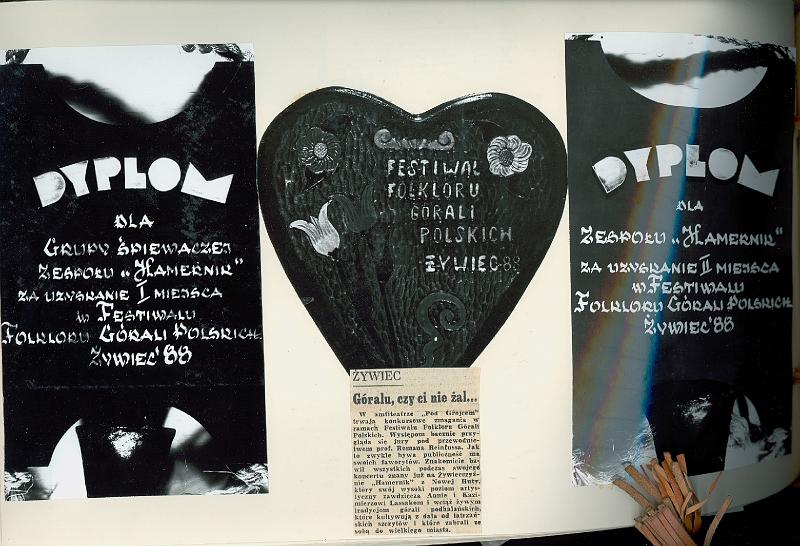 DYPLOM
DLA
GRUPY ŚPIEWACZEJ
ZESPOŁU „HAMERNIK"
ZA UZYSKANIE I MIEJSCA
W FESTIWALU
FOLKLORU GÓRALI POLSKICH
ŻYWIEC'88
FESTIWAL
FOLKLORU
GÓRALI
POLSKICH
ŻYWIEC-88
DYPLOM
DLA
ZESPOŁU „HAMERNIK"
ZA UZYSKANIE II MIEJSCA
W FESTIWALU
FOLKLORU GÓRALI POLSKICH
ŻYWIEC'88
ŻYWIEC
Góralu, czy ci nie żal...
W amfiteatrze „Pod Grojcem"
trwają konkursowe zmagania w
ramach Festiwalu Folkloru Górali
Polskich. Występom bacznie przy-
gląda się jury pod przewodnic-
twem prof. Romana Reinfussa. Jak
to zwykle bywa publiczność ma
swoich faworytów. Znakomicie ba-
wił wszystkich podczas swojego
koncertu znany już na Żywiecczyź-
nie „Hamernik" z Nowej Huty,
który swój wysoki poziom artys-
tyczny zawdzięcza Annie i Kazi-
mierzowi Lassakom i wciąż żywym
tradycjom górali podhalańskich,
które kultywują z dala od tatrzań-
skich szczytów i które zabrali ze
sobą do wielkiego miasta.